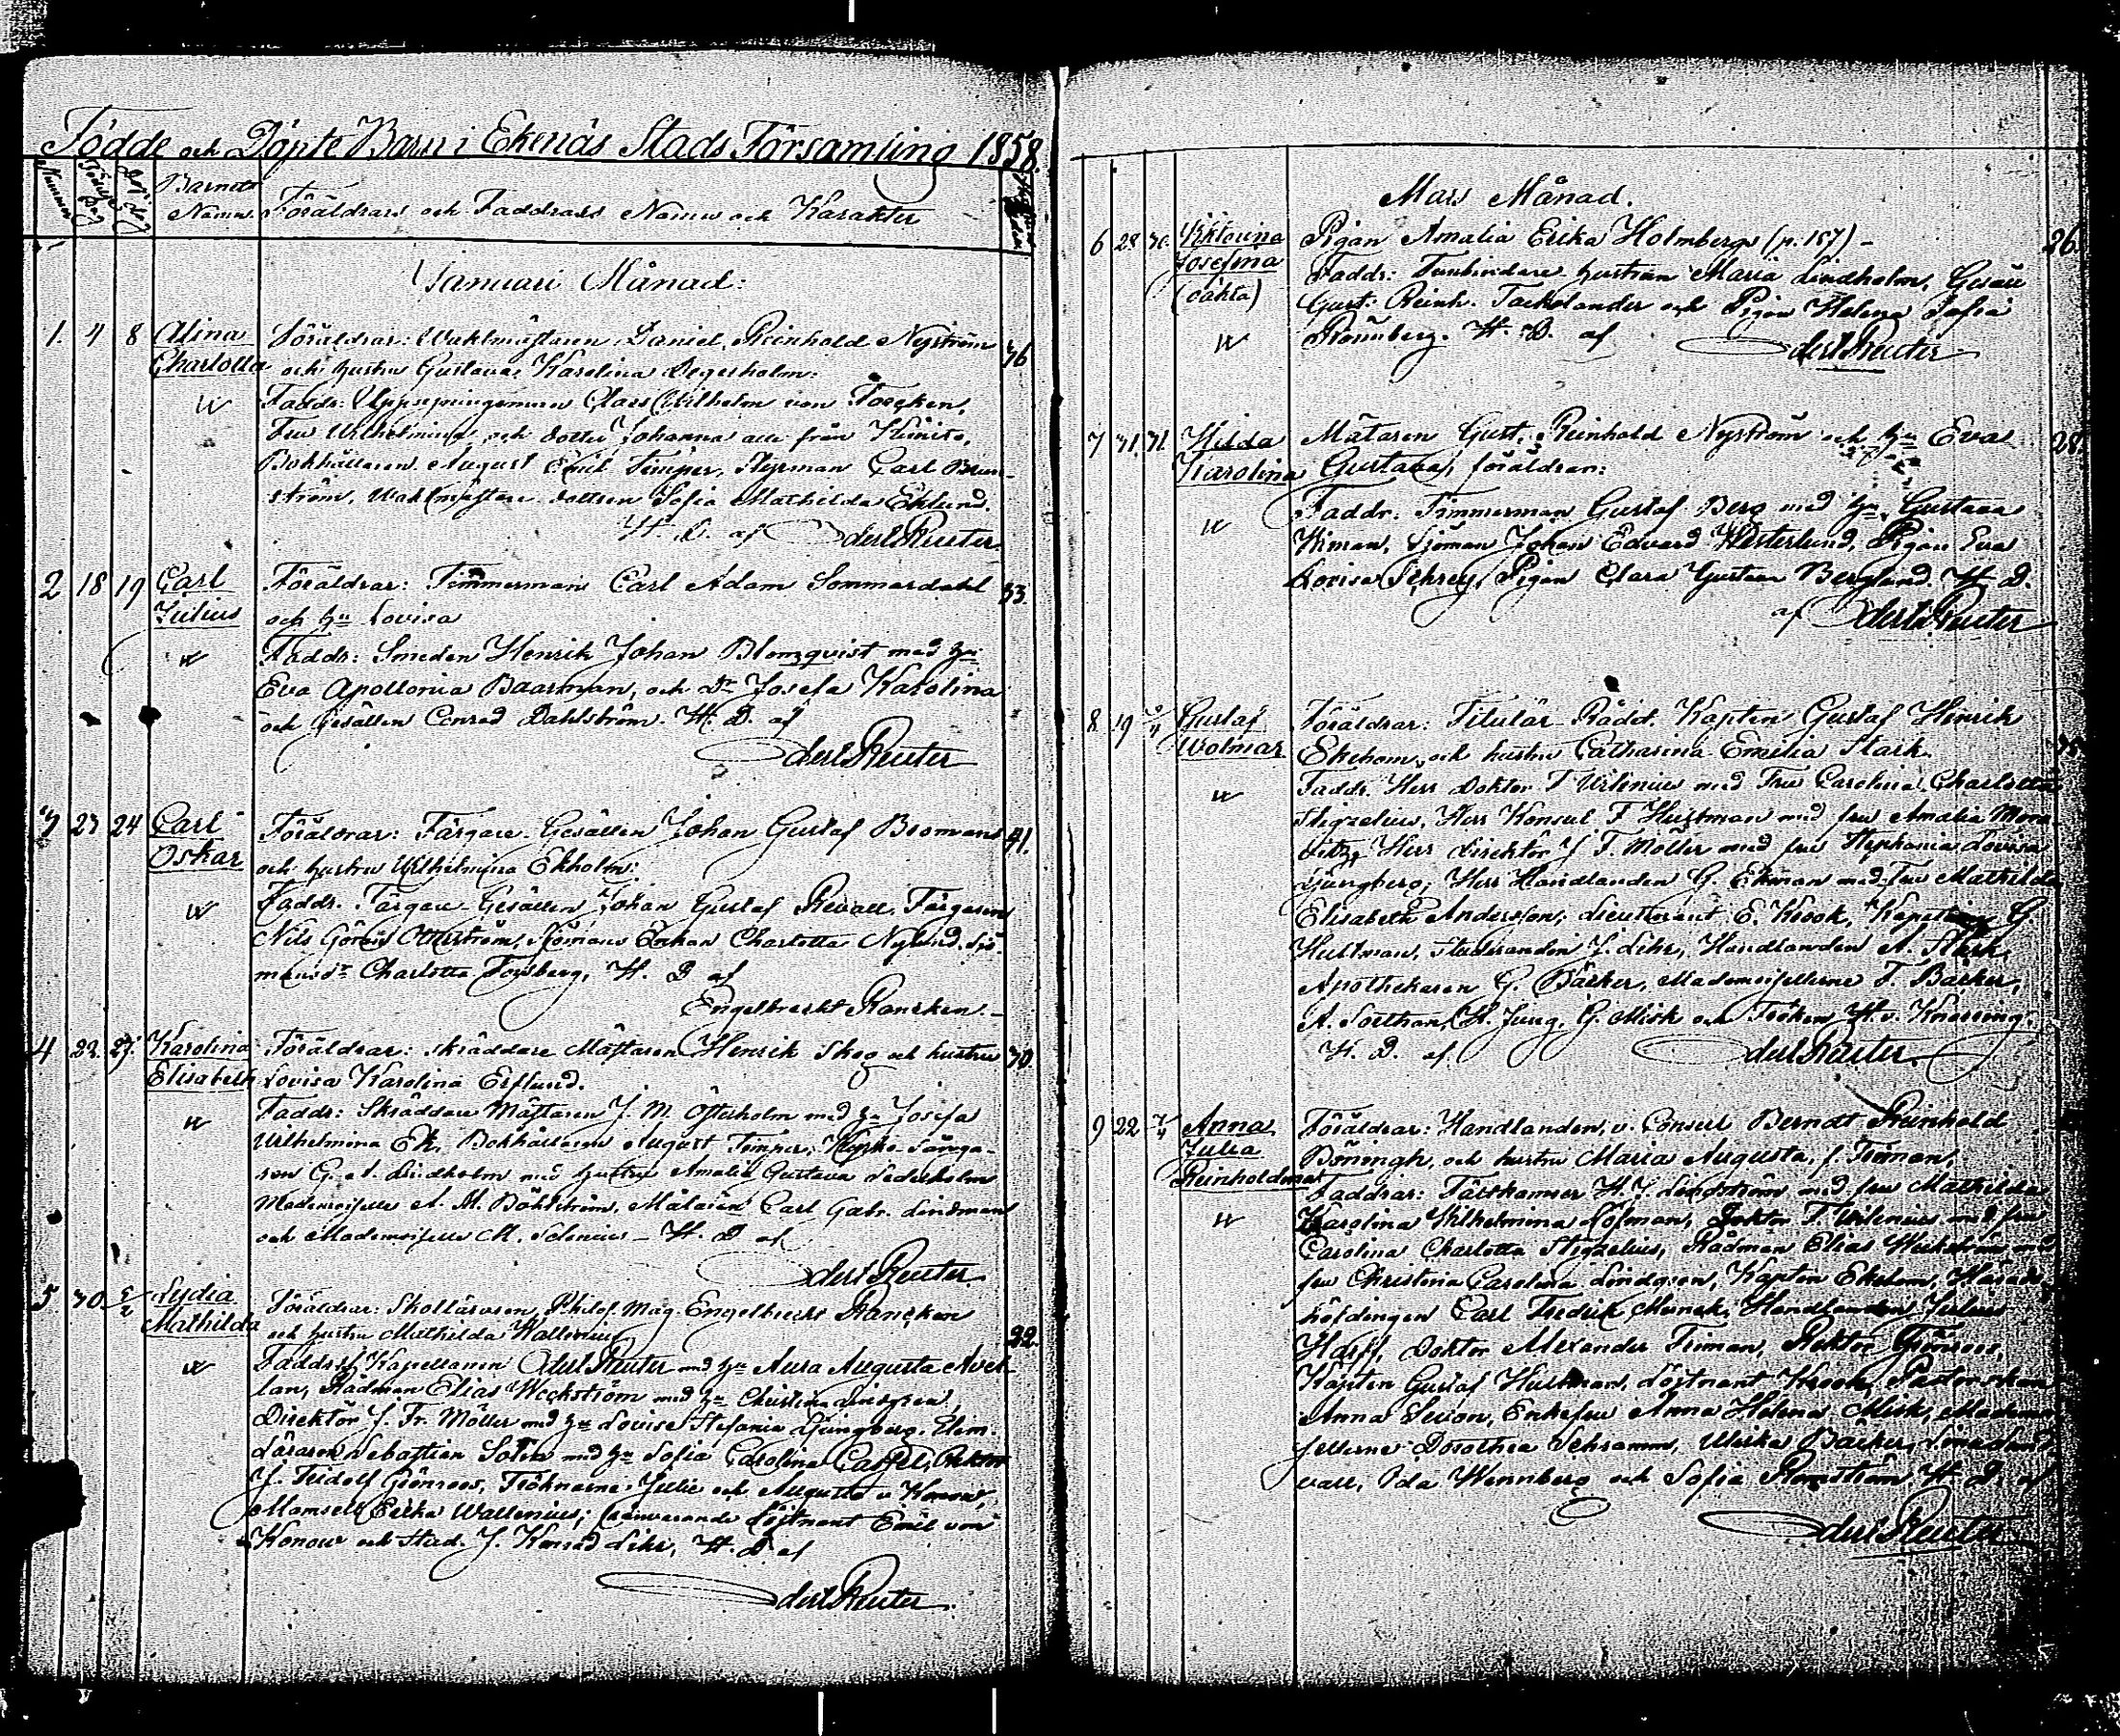 Födde och Döpte Barn i Ekenäs Stads Församling 1858.
Barnets
Namn. Föräldrars och Faddrars Namn och Karakter
Januari Månad:
1. 4 8 Alina Föräldrar: Waktmästaren Daniel Reinhold Nyström 36
Charlotta och hustru Gustava Karolina Degerholm:
Faddr: Uppsyningsman Clas Wilhelm von
Fru Wilhelmina och dotter Johanna alla från
Bokhållaren August Emil Timper, Styrman Carl Brun-
ström, Waktmästare dottren Sofia Mathilda Eklund.
H. D. af Aderl Reuter.
2 18 19 Carl Föräldrar: Timmerman Carl Adam Sommardahl 33.
Julius och hu Lovisa
Faddr: Smeden Henrik Johan Blomqvist med hu
Eva Apollonia Baarman, och Dr Josefa Karolina
och Gesällen Conrad Dahlström. H. D. af
Aderl Reuter
3 23 24 Carl Föräldrar: Färgare-Gesällen Johan Gustaf Broman 41.
Oskar och hustru Wilhelmina Ekholm:
Faddr. Färgare-Gesällen Johan Gustaf Färgaren
Nils Sjömans Enkan Charlotta Nylund. Sjö-
mansdr Charlotta Forsberg, H. D af
Engelbrecht Rancken.
4 22. 27. Karolina Föräldrar: skräddare Mästaren Henrik Skog och hustru 30.
Elisabeth Lovisa Karolina
Faddr: Skräddare Mästaren J. M. Österholm med hu Josefa
Wilhelmina Ek, Bokhållaren August Timper,
G. A. Lindholm med hustru Amalia Gustava
Mademoiselle A. M. Målaren Carl Gabr. Lindman
och Mademoiselle M. H. D af
Aderl Reuter
5. 30 5/2 Lydia Föräldrar: Skolläraren, Philos. Mag. Engelbrecht Rancken
Mathilda och hustru Mathilda Wallenius 22.
Faddr: Kapellanen Aderl Reuter med hu Aura Augusta
Rådman Elias Weckström med hu Christina Lindgren,
Direktör J. Fr. Möller med hu Lovise Stefanie Ljungberg, Elem.
Läraren Sebastian med hu Sofia Carolina
J. Fridolf Grönroos, Fröknarna Julie och Augusta v
Mamsell Erika Wallenius; Löjtnant Emil von
Konow och Stud. J. Konrad H. D af
Aderl Reuter.
Mars Månad.
6 28 30. Josefina Pigan Amalia Erika Holmberg (p. 187) - 26.
(oäkta) Faddr: Tunbindare hustrun Maria Lindholm, Gesäll
Gust. Reinh. Tackolander och Pigan Helena Sofia
Rönnberg. H. D. af Aderl Reuter
7 31. 31. Hilda Gust. Reinhold Nyström och hu Eva 28.
Karolina Gustava, föräldrar:
Faddr. Timmerman Gustaf Berg med hu Gustava
Wiman, Sjöman Johan Edvard Westerlund, Pigan Eva
Lovisa Pigan Clara Gustava Berglund. H. D.
af Aderl Reuter
8 19 3/4 Gustaf Föräldrar: Titulär-Rådet, Kapten Gustaf Henrik
Wolmar Ekebom, och hustru Catharina Emilia Stark.
Faddr. Herr Doktor T Urlenius med Fru Carolina Charlotta
Stigzelius, Herr Konsul F Hultman med fru Amalia
Herr Direktör J. F. Möller med fru Stephania Lovisa
Ljungberg; Herr Handlanden G. Ekman med fru Mathilda
Elisabeth Andersson; Lieutnant E. Krook, G
Hultman, Studeranden J. Handlanden A. Stark,
Apothekaren G. Bäcker, Mademoisellerna F. Bäcker,
A. H. Jung, G. Misk och Fröken H. v. Knorring.
H. D. af Aderl Reuter.
9 22 7/4 Anna Föräldrar: Handlanden, v. Consul Berndt Reinhold
Julia Böningh, och hustru Maria Augusta, f. Triman,
Reinholdina Faddrar: H. J. Lindström med fru Mathilda
Karolina Wilhelmina Löfman, Doktor T. Urlenius med fru
Carolina Charlotta Stigzelius, Rådman Elias Weckström med
fru Christina Carolina Lindgren, Kapten Ekebom, Härads-
höfdingen Carl Fredrik Munck, Handlanden Julius
Doktor Alexander Triman, Rektor Grönroos,
Kapten Gustaf Hultman, Löjtnant Krook,
Anna Enkefru Anna Helena Misk,
Dorothea Schramm, Ulrika Bäcker,
Ida Wennberg och Sofia H. D. af
Aderl Reuter